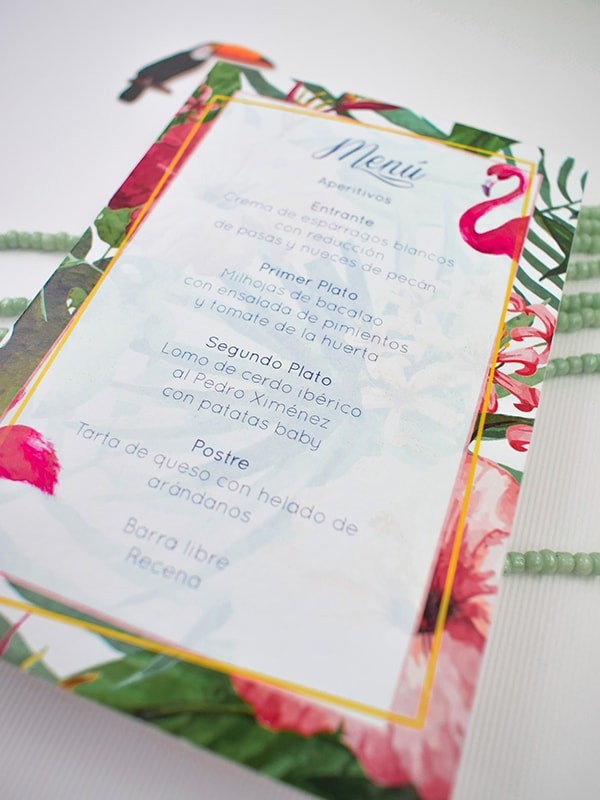 Menú
Aperitivos
Entrante
Crema de espárragos blancos
con reducción
de pasas y nueces de pecán
Primer Plato
Milhojas de bacalao
con ensalada de pimientos
y tomate de la huerta
Segundo Plato
Lomo de cerdo ibérico
al Pedro Ximénez
con patatas baby
Postre
Tarta de queso con helado de
arándanos
Barra libre
Recena